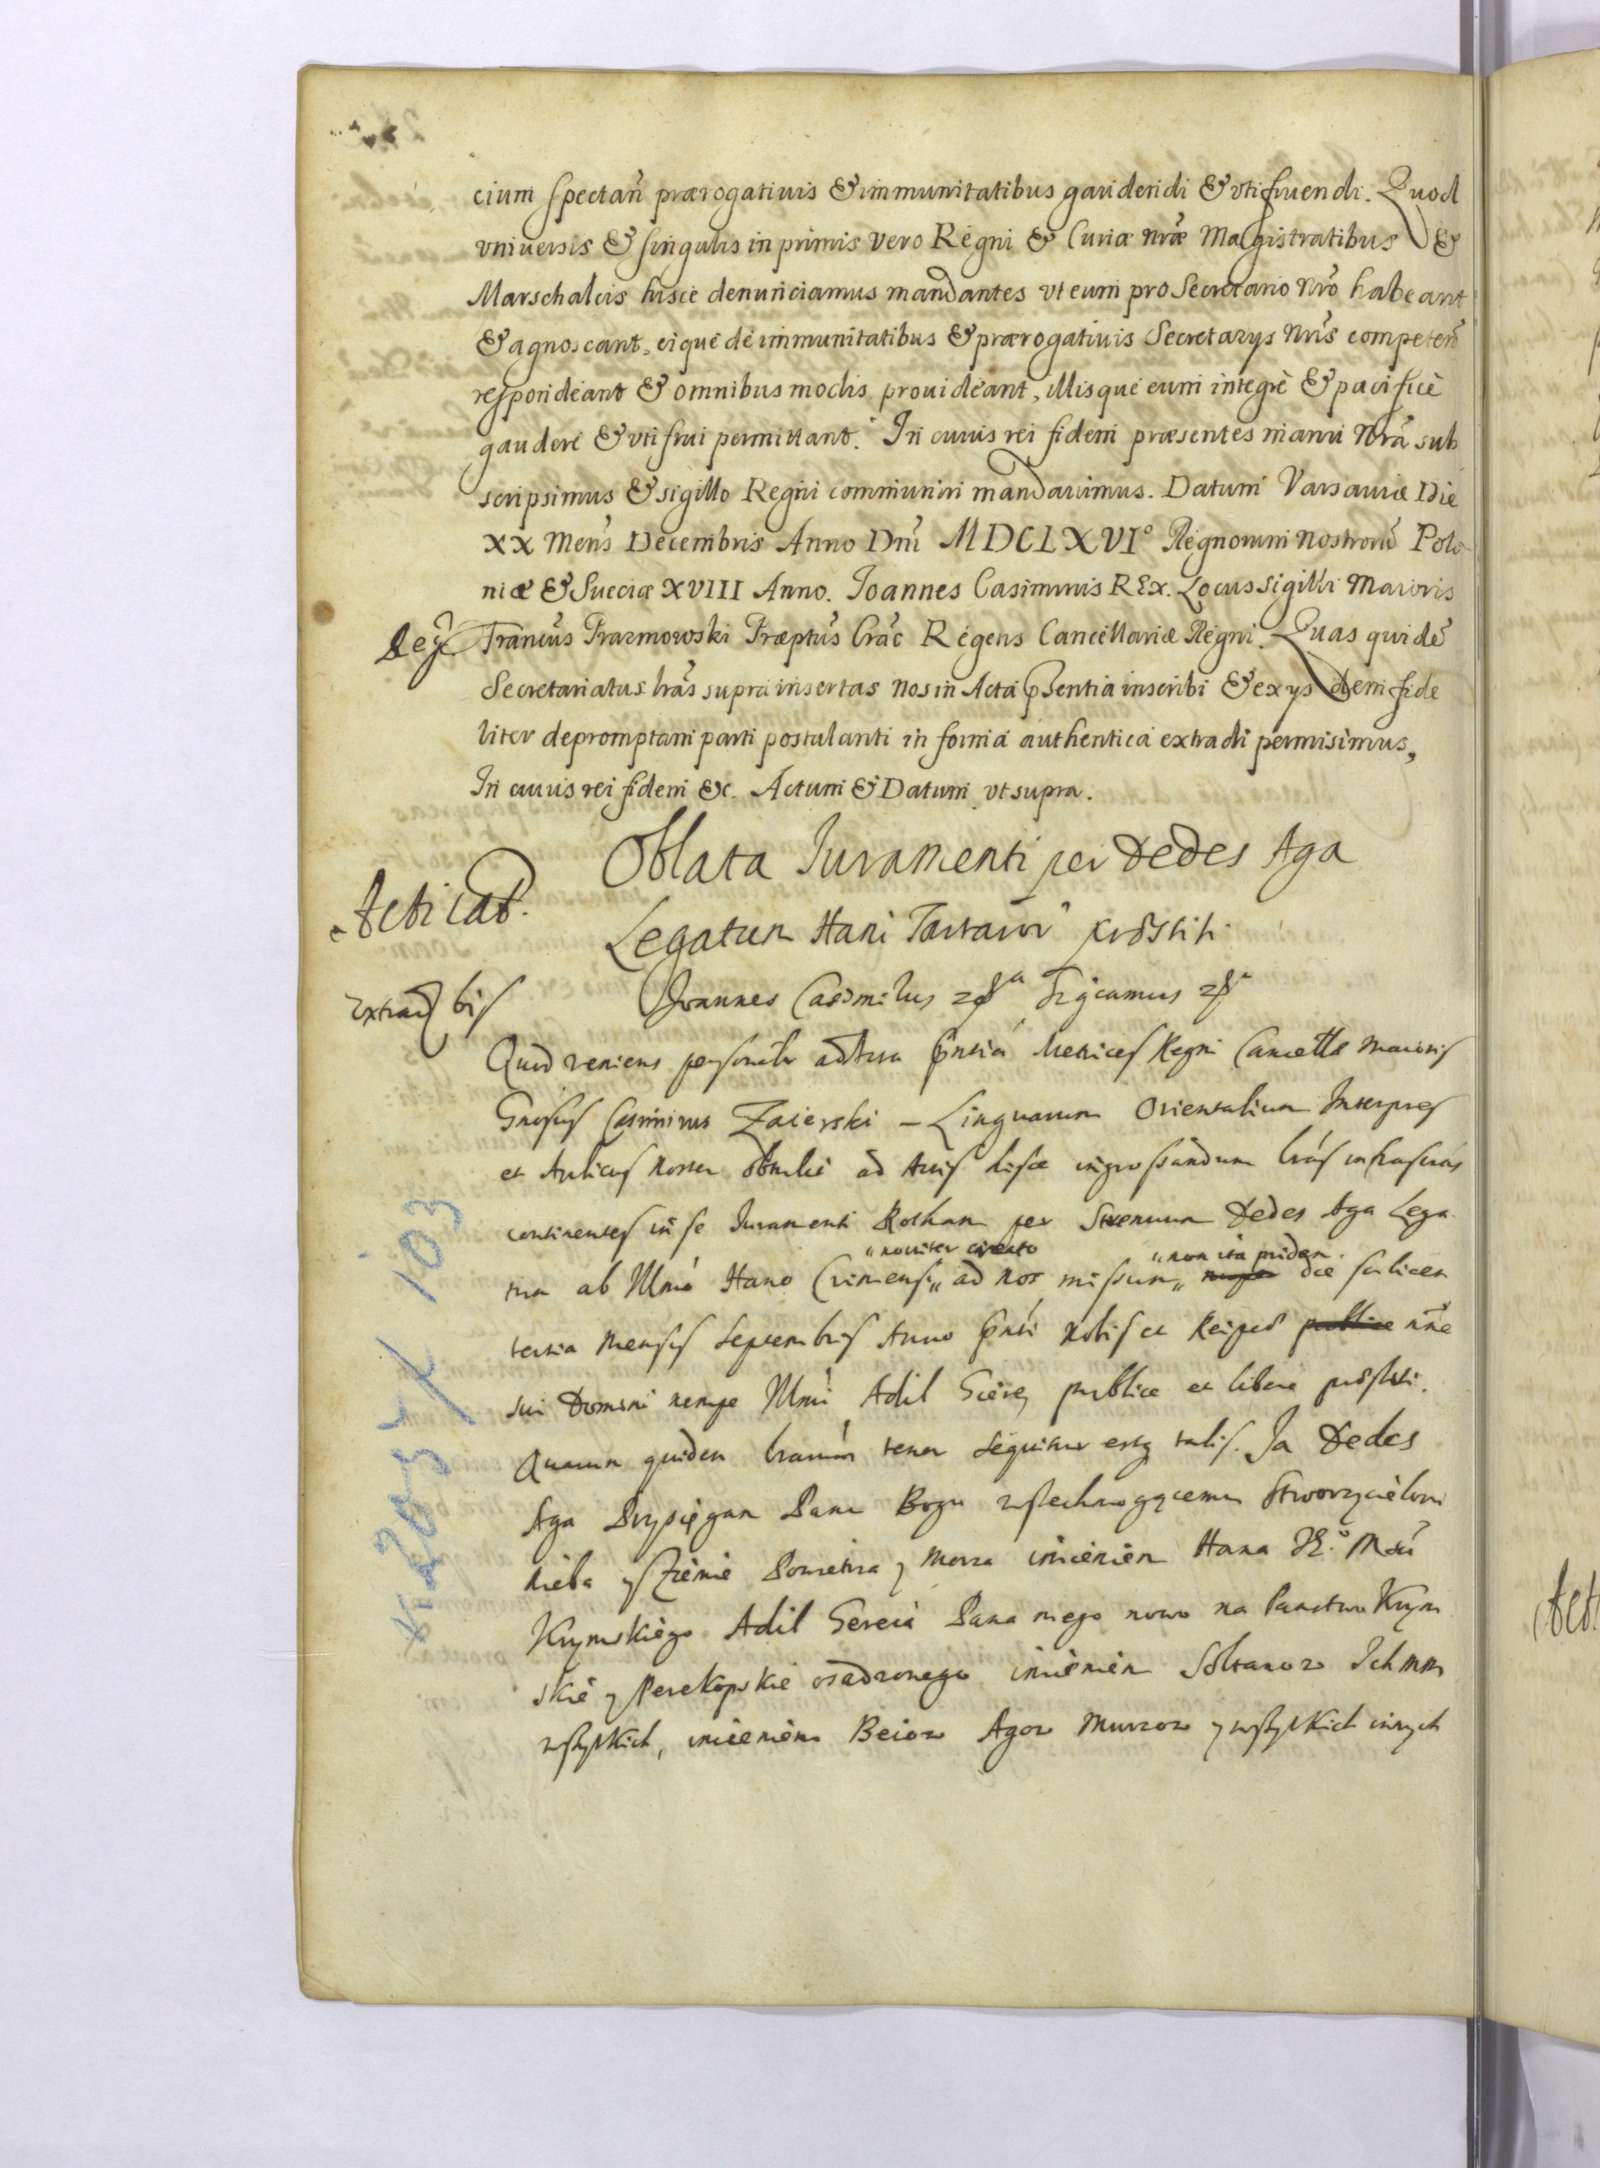 cium spectan̄ prærogativis & immunitatibus gaudendi & vtifruendi. Quod
vniversis & singulis in primis vero Regni & Curiæ nr̃æ Magistratibus &
Marschalcis hisce denunciamus mandantes vt eum pro Secretario Nr̃o habeant
& agnoscant, eique de immunitatibus & prærogativis Secretarys Nr̃is competeñ
respondeant & omnibus modis provideant, illisque eum integrè & pacificè
gaudere & vti frui permittant. In cuius rei fidem præsentes manu Nr̃a sub
scripsimus & sigillo Regni communiri mandavimus. Datum Varsaviæ Die
XX Mens̃ Decembris Anno Dñi MDCLXVIº Regnorum Nostrorũ Polo
niæ & Sueciæ XVIII Anno. Ioannes Casimirus REx. Locus sigilli Maioris
Francus̃ Prazmowski Præptus̃ Crac̃ Regens Cancellariæ Regni. Quas quidẽ
Secretariatus lr̃as supra insertas nos in Acta p̃sentia inscribi & ex ysdem fide
liter depromptam parti postulanti in forma authentica extradi permisimus,
In cuius rei fidem &c. Actum & Datum vt supra.
Oblata Iuramenti per Dedes Aga
Acticat.
Legatum Hani Tartaror̃ præstiti.
Extrad bis
Joannes Casimirus Significamus
Quod veniens personalr̃ ad Acta p̃ntia Metrices Regni Cancellæ Maioris
Gnosus Casimirus Zaierski – Linguarum Orientalium Interpres
et Aulicus Noster obtulit ad Actis hisce ingrossandum lr̃as infrascr̃as
continentes in se Iuramenti Rotham per Strenuum Dedes Aga Lega
„noviter creato „non ita pridem.
tum ab Illmo Hano Crimensi„ ad nos missum„ die scilicet
tertia Mensis Septembris Anno p̃nti Nobis et Reipco publice nñe
sui Domini nempe Illmi Adil Gierey publice et libere præstiti.
Quarum quidem lrarum tenor sequitur estq talis. Ja Dedes
Aga Przysięgam Panu Bogu wszechmogącemu Stworzycielowi
Nieba y Ziemie Powietrza y Morza imieniem Hana JE.º Mći
Krymskiego Adil Gereia Pana mego nowo na Panstwo Krym
skie y Perekopskie osadzonego imieniem Sołtanow Ichmm
wszytkich, imieniem Beiow Agow Murzow y wszytkich innych
103